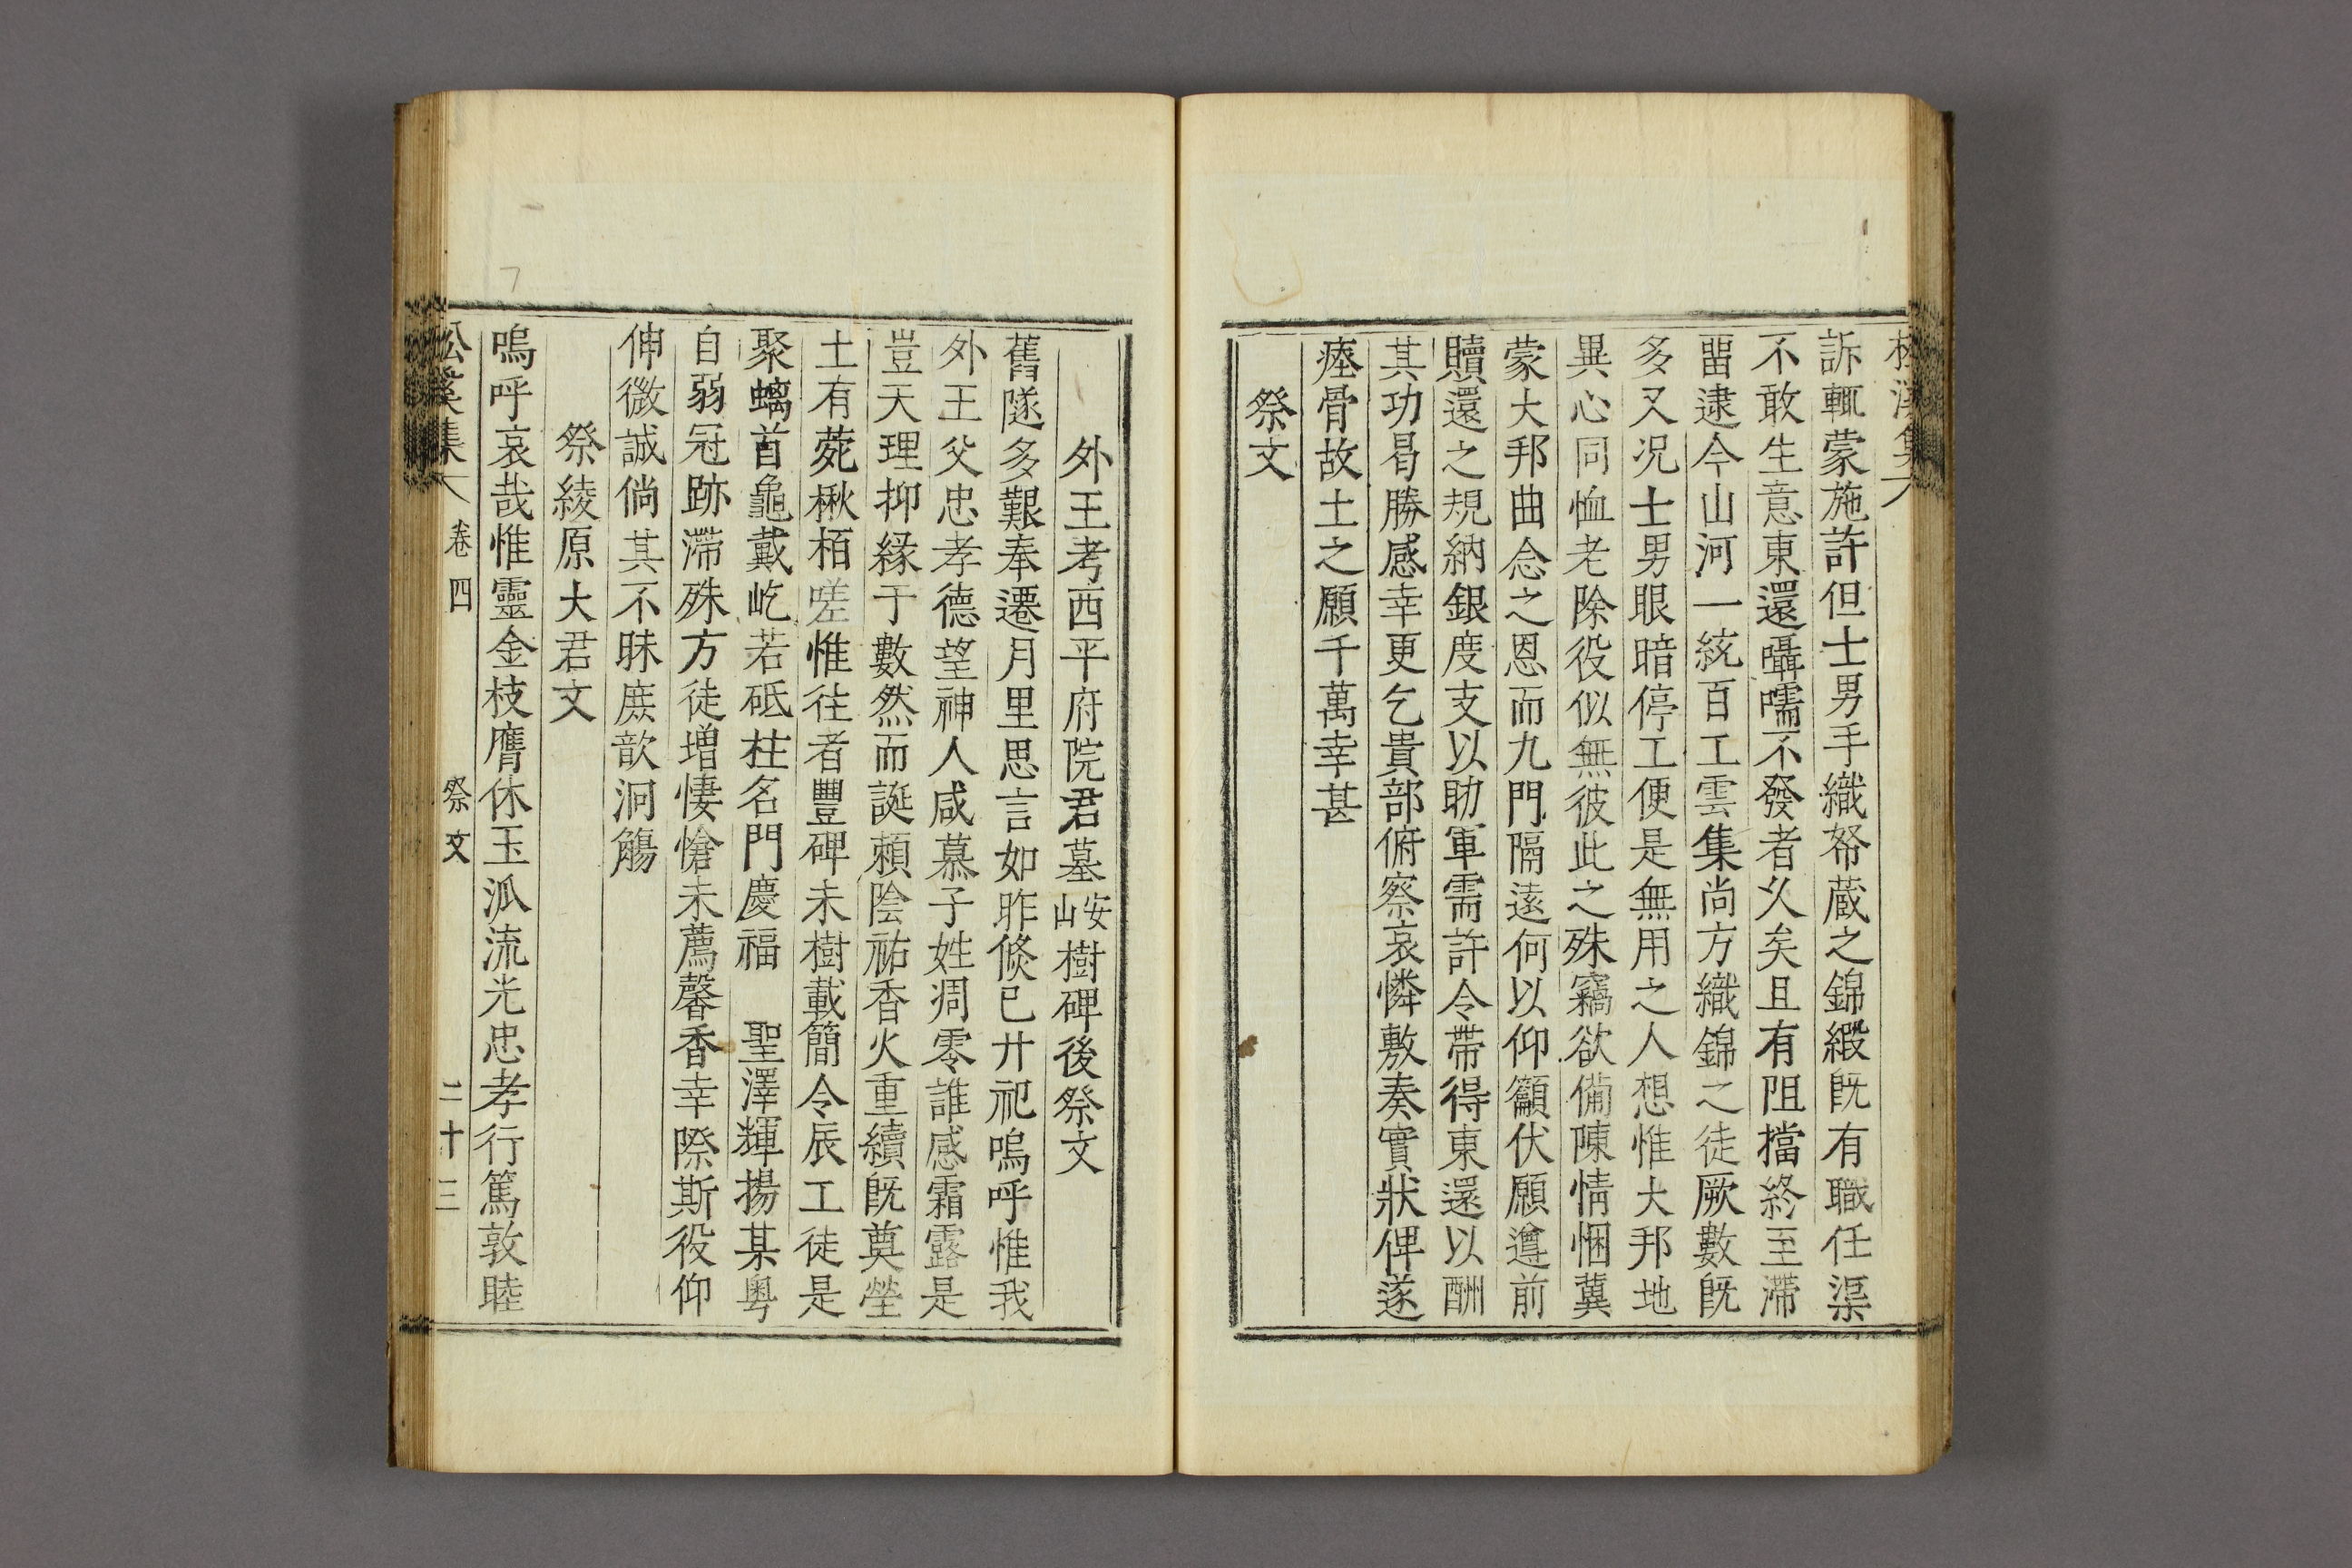 訴輒蒙施許但士男手織帑蔵之錦緞旣有職任渠
不敢生意東還囁嚅不發者久矣且有阻擋終至滯
畱逮今山河一統百工雲集尚方織錦之徒厥數旣
多又况士男眼暗停工便是無用之人想惟大邦地
異心同恤老除役似無彼此之殊竊欲備陳情悃冀
蒙大邦曲念之恩而九門隔遠何以仰籲伏願遵前
贖還之規納銀度支以助軍需許令帶得東還以酬
其功曷勝感幸更乞貴部俯察哀憐敷奏實狀俾遂
瘞骨故土之願千萬幸甚
祭文
外王考西平府院君墓安山樹碑後祭文
舊隧多艱奉遷月里思言如昨倐已廾祀嗚呼惟我
外王父忠孝德望神人咸慕子姓凋零誰感霜露是
豈天理抑緣于數然而誕賴陰祐香火重續旣奠塋
土有菀楸栢嗟惟往者豐碑未樹載簡令辰工徒是
聚螭首龜戴屹若砥柱名門慶福 聖澤輝揚某粤
自弱冠跡滯殊方徒增悽愴未薦馨香幸際斯役仰
伸微誠倘其不昧庶歆泂觴
祭綾原大君文
嗚呼哀哉惟靈金枝膺休玉泒流光忠孝行篤敦睦
松溪集 卷四 祭文 二十三